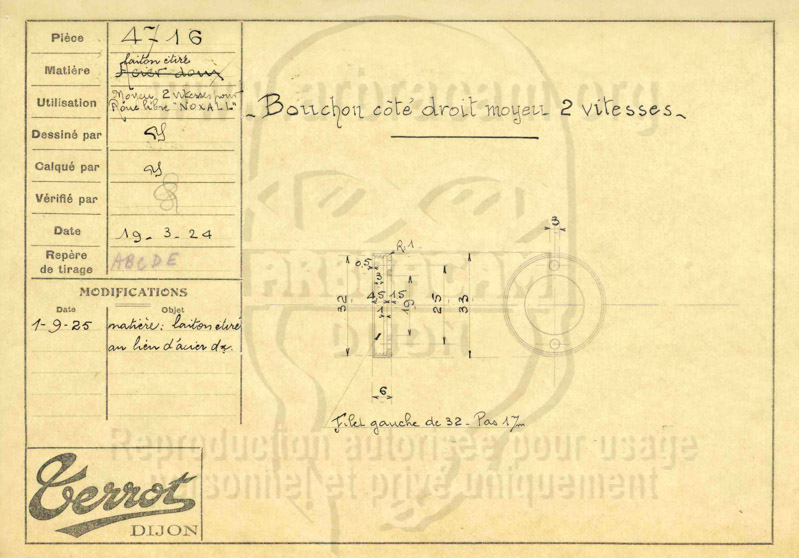 Pièce 4716
Matière laiton étiré
Acier doux
Utilisation Moyeu, 2 vitesses pour
Roue libre "NOXALL"
Dessiné par
Calqué par
Vérifié par
Date 19-3-24
Repère de tirage ABCDE
MODIFICATIONS
Date Objet
1-9-25 matière: laiton étiré
au lieu d'acier dx.
Terrot
DIJON
- Bouchon côté droit moyeu 2 vitesses -
R.1
0,5
3
4,5 1,5
1
32
19
25
33
6
3
Filet gauche de 32 - Pas 1 m/m
www.arbracam.org
ARBRACAM
Dijon
Reproduction autorisée pour usage
personnel et privé uniquement